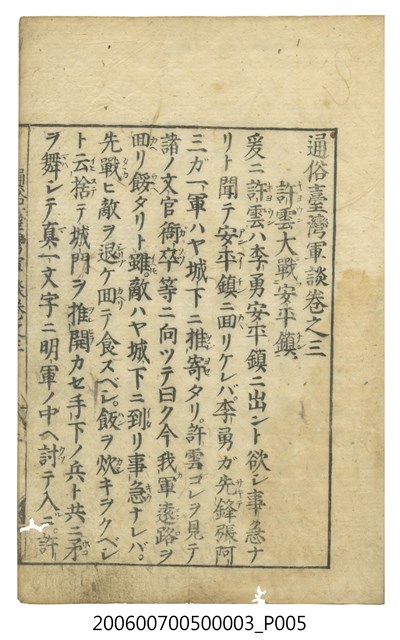 通俗臺灣軍談卷之三
許雲大戰安平鎮
爰ニ許雲ハ李勇安平鎮ニ出ント欲シ事急ナ
リト聞テ安平鎮ニ回リケレバ李勇ガ先鋒張阿
三ガ軍ハヤ城下ニ推寄タリ許雲コレヲ見テ
諸ノ文官衛卒等ニ向ツテ曰ク今我軍遠路ヲ
回リ餒タリト雖敵ハヤ城下ニ到リ事急ナレバ
先戰ヒ敵ヲ退ケ回テ食スベシ飯ヲ炊キヲクベシ
ト云捨テ城門ヲ推開カセ手下ノ兵ト共ニ矛
ヲ舞シテ真一文字ニ明軍ノ中ヘ討テ入ル許
200600700500003_P005